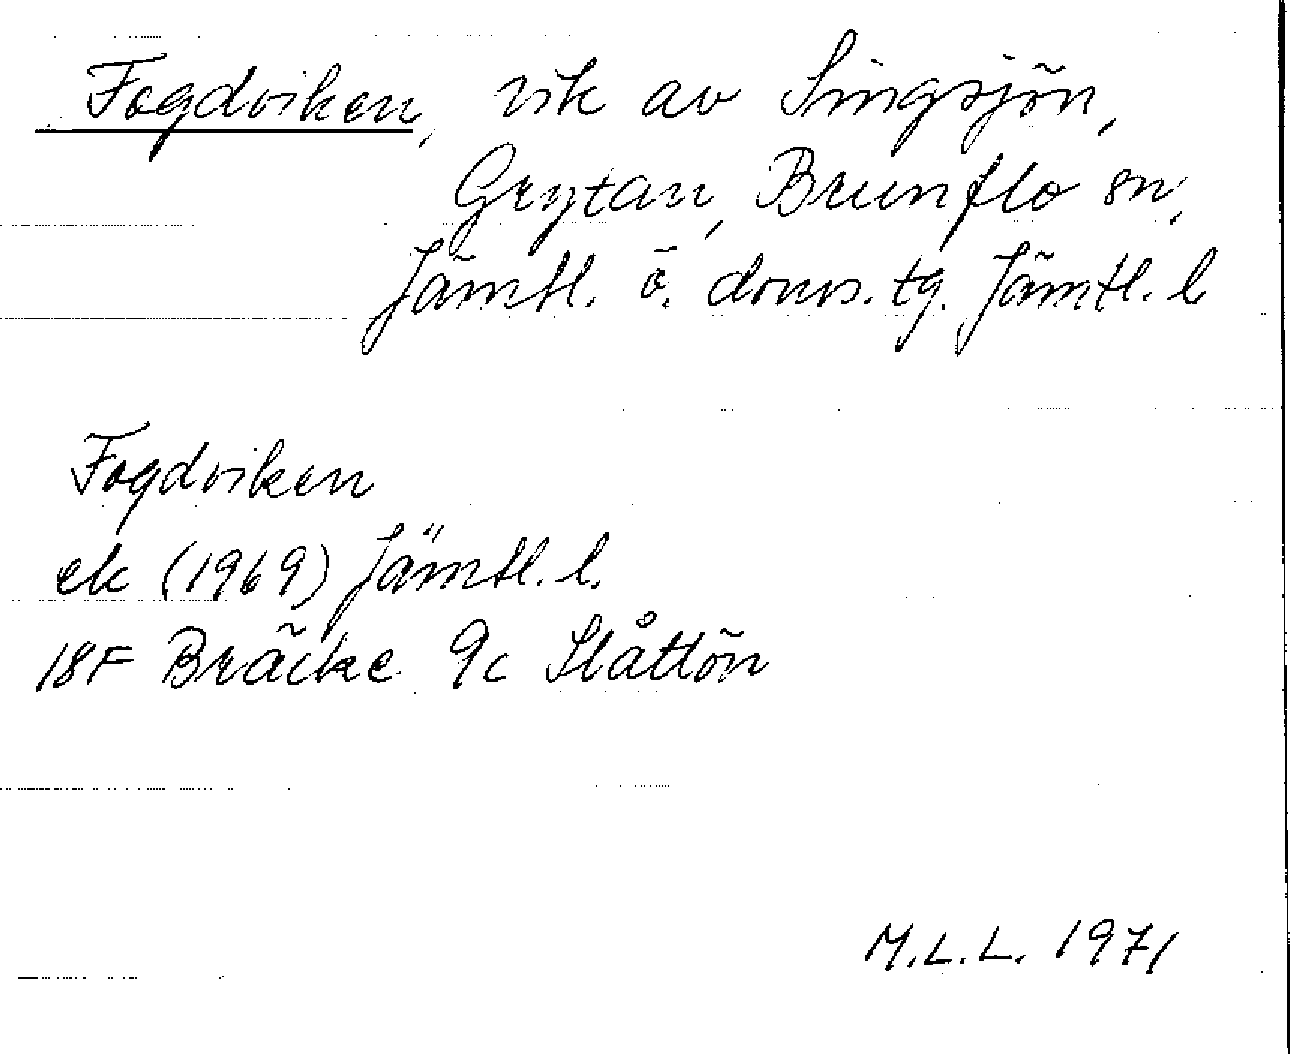 Fogdviken, vik av Singsjön,
Grytan, Brunflo sn,
Jämtl. ö. doms. tg. Jämtl. l
Fogdviken
ek (1969) Jämtl. l.
18F Bräcke 9c Slåttön
M.L.L. 1971